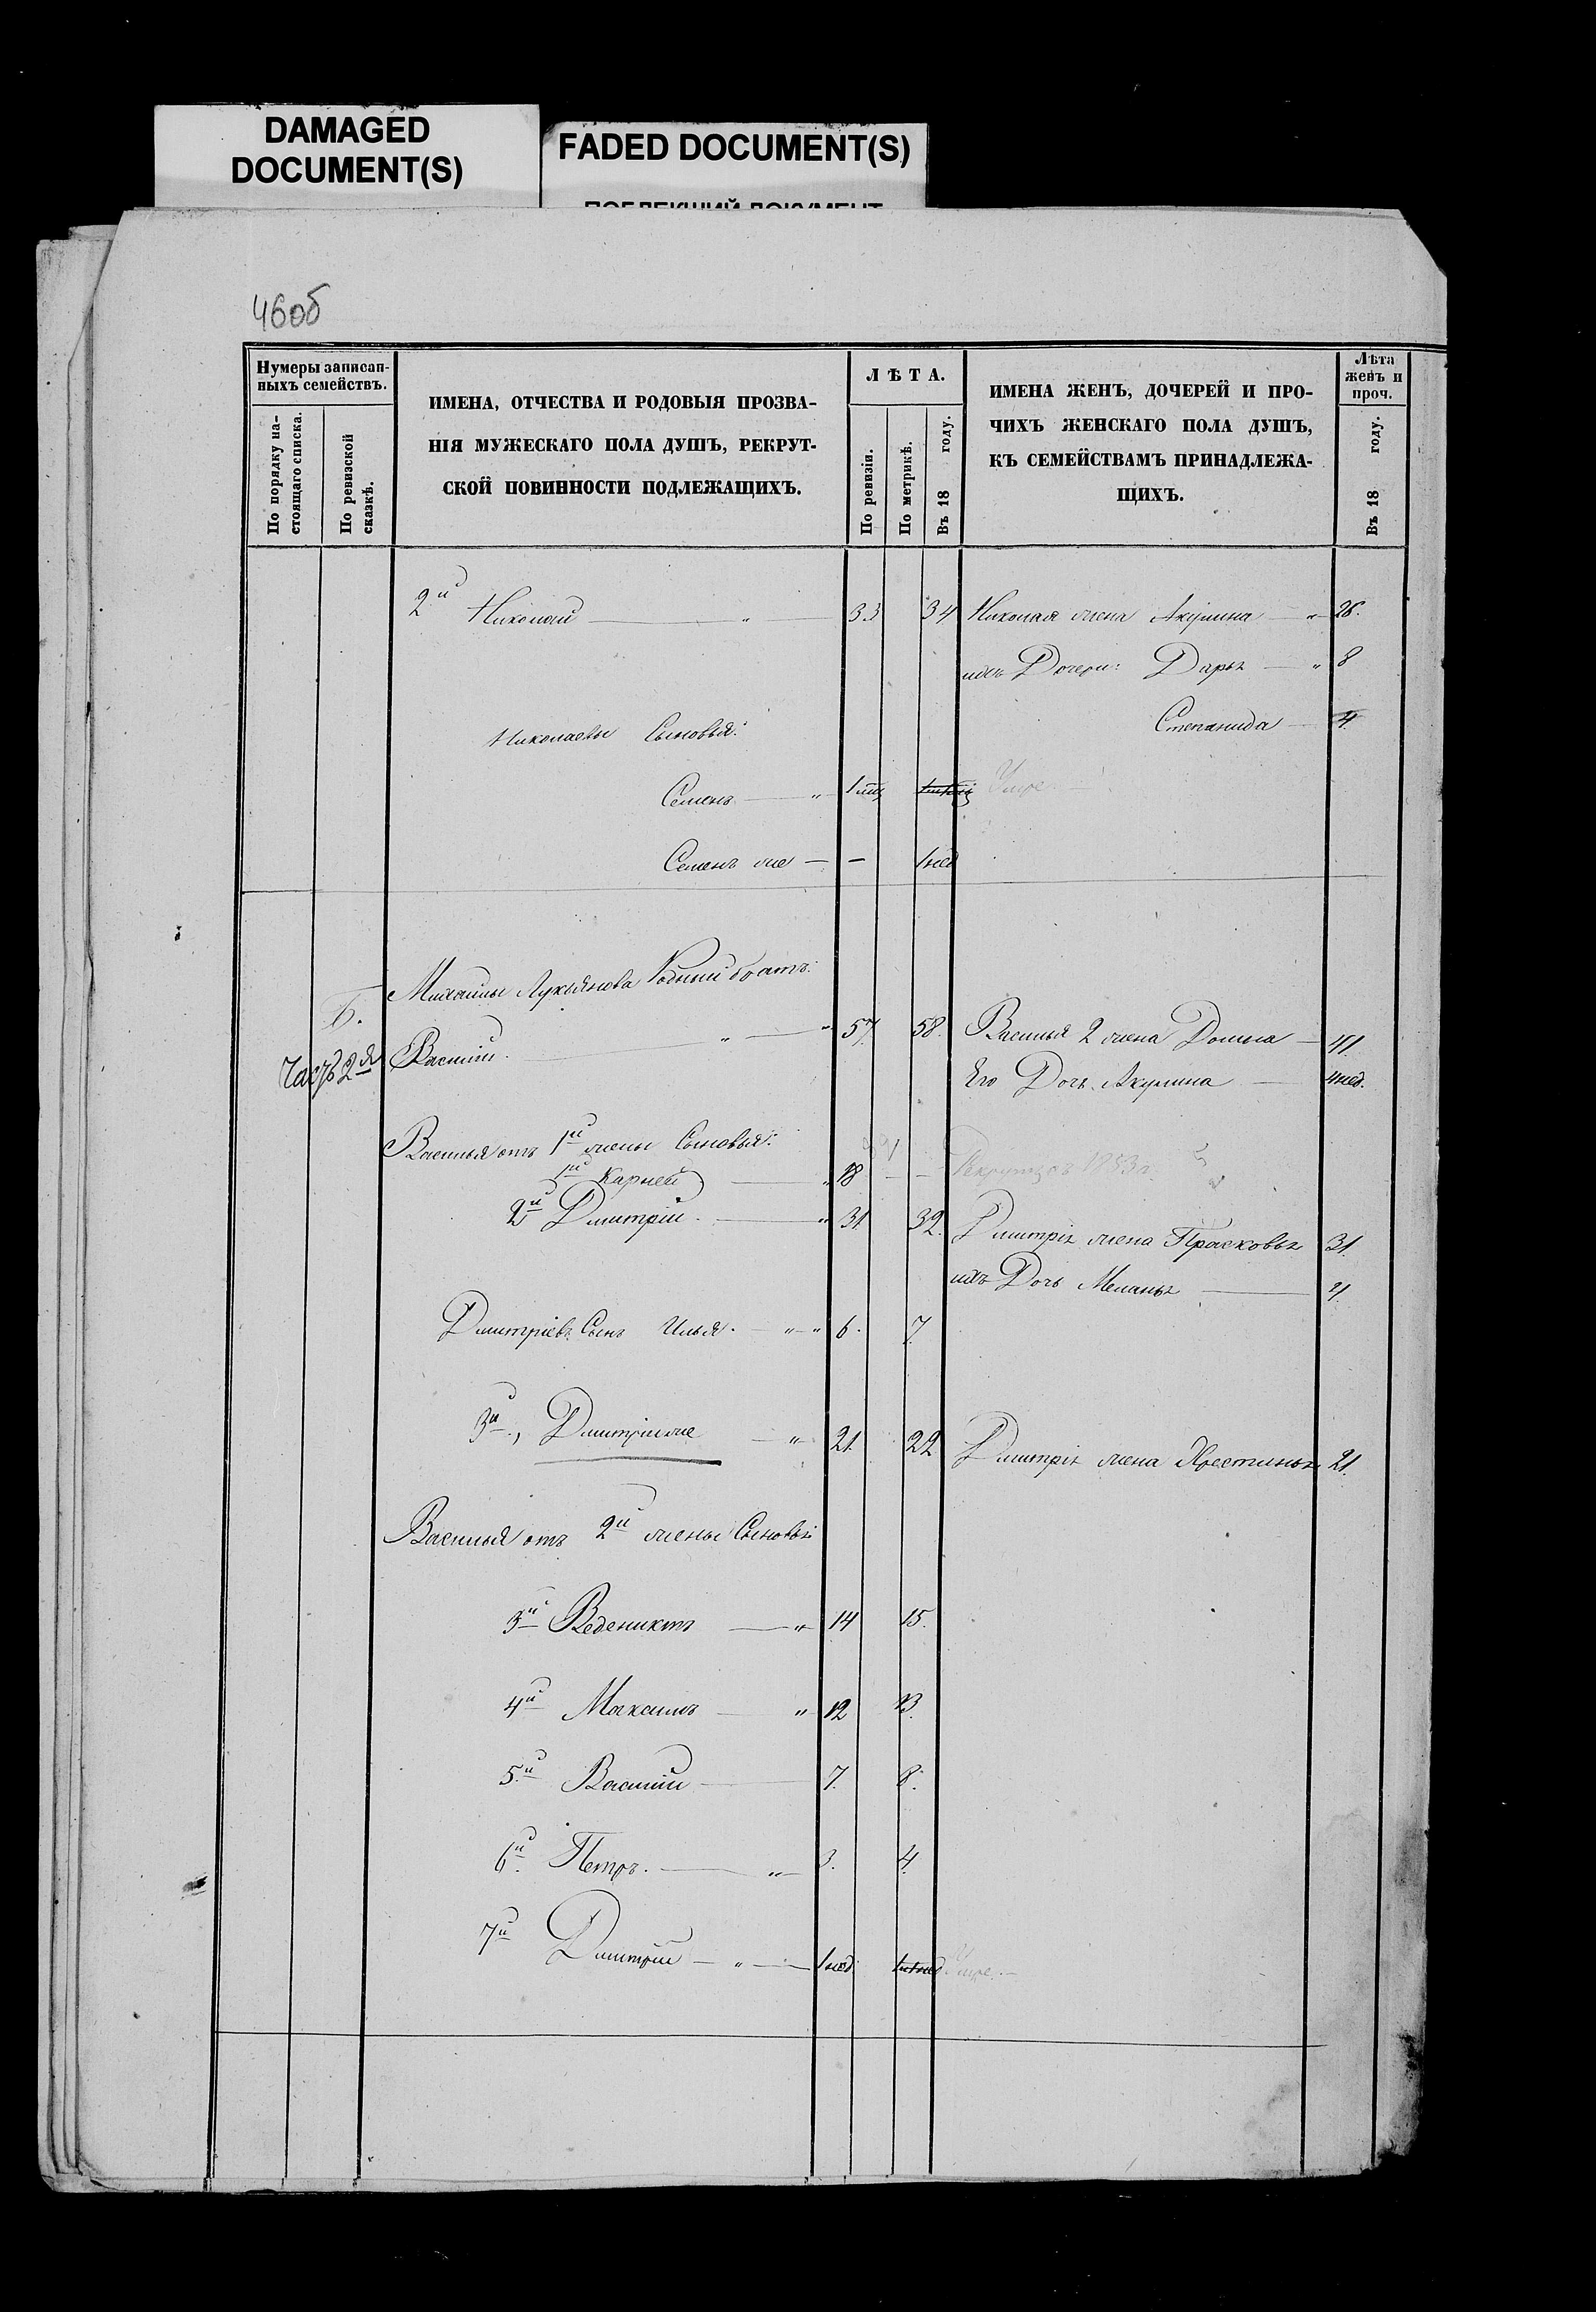 DAMAGED
DOCUMENT(S)
FADED DOCUMENT(S)
ПОБЛЕКШИЙ ДОКУМЕНТ
46об
Нумеры записан-
ныхъ семействъ.
По порядку на-
стоящаго списка.
По ревизской
сказкѣ.
ИМЕНА, ОТЧЕСТВА И РОДОВЫЯ ПРОЗВА-
НІЯ МУЖЕСКАГО ПОЛА ДУШЪ, РЕКРУТ-
СКОЙ ПОВИННОСТИ ПОДЛЕЖАЩИХЪ.
ЛѢТА.
По ревизіи.
По метрикѣ.
Въ 18 году.
ИМЕНА ЖЕНЪ, ДОЧЕРЕЙ И ПРО-
ЧИХЪ ЖЕНСКАГО ПОЛА ДУШЪ,
КЪ СЕМЕЙСТВАМЪ ПРИНАДЛЕЖА-
ЩИХЪ.
Лѣта
женъ и
проч.
Въ 18 году.
2й Николай — " — 33 34 Николая жена Акулина — " — 26.
ихъ Дочери: Дарья — " 8
Степанида — 4.
Николаевы Сыновья:
Семенъ — " 1 мц Умре —
Семенъ же — — 1 нед
Михайлы Лукьянова Родный братъ:
Часть 2я Василий. — " — " 57. 58. Василья 2 жена Домна — 41.
Его Дочь Акулина — 4 нед.
Василья отъ 1й жены Сыновья:
1й Карней — " 18 — — Рекрутъ въ 1853 г.
2й Дмитрій. — " 31. 32. Дмитрія жена Прасковья 31.
ихъ Дочь Меланья — 4
Дмитріевъ Сынъ Илья. — " — " 6. 7.
3й, Дмитрій же — " 21. 22 Дмитрія жена Христинья 21.
Василья отъ 2й жены Сыновья:
3й Ведениктъ — " 14 15.
4й Максимъ — " 12 13.
5й Василий — 7. 8.
6й Петръ. — " — 3. 4.
7й Дмитрій — " — 1 нед Умре. —